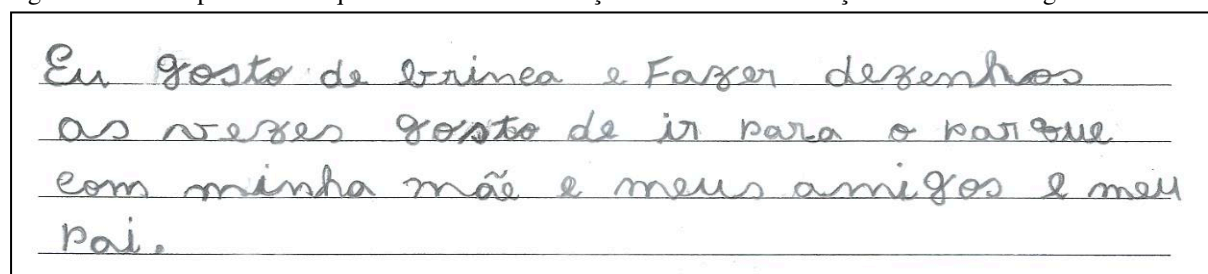 Eu gosto de brinca e Fazer dezenhos
as vezes gosto de ir para o parque
com minha mãe e meus amigos e meu
Pai.